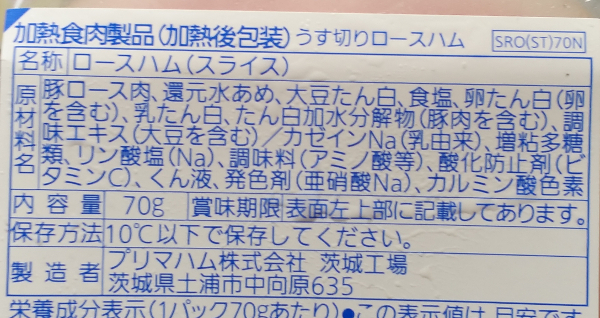 加熱食肉製品(加熱後包装)うす切りロースハム SRO(ST)70N
名称 ロースハム(スライス)
原材料名 豚ロース肉、還元水あめ、大豆たん白、食塩、卵たん白(卵
を含む)、乳たん白、たん白加水分解物(豚肉を含む)、調
味エキス(大豆を含む)/カゼインNa(乳由来)、増粘多糖
類、リン酸塩(Na)、調味料(アミノ酸等)、酸化防止剤(ビ
タミンC)、くん液、発色剤(亜硝酸Na)、カルミン酸色素
内容量 70g 賞味期限 表面左上部に記載してあります。
保存方法 10℃以下で保存してください。
製造者 プリマハム株式会社 茨城工場
茨城県土浦市中向原635
栄養成分表示(1パック70gあたり)●この表示値は、目安です